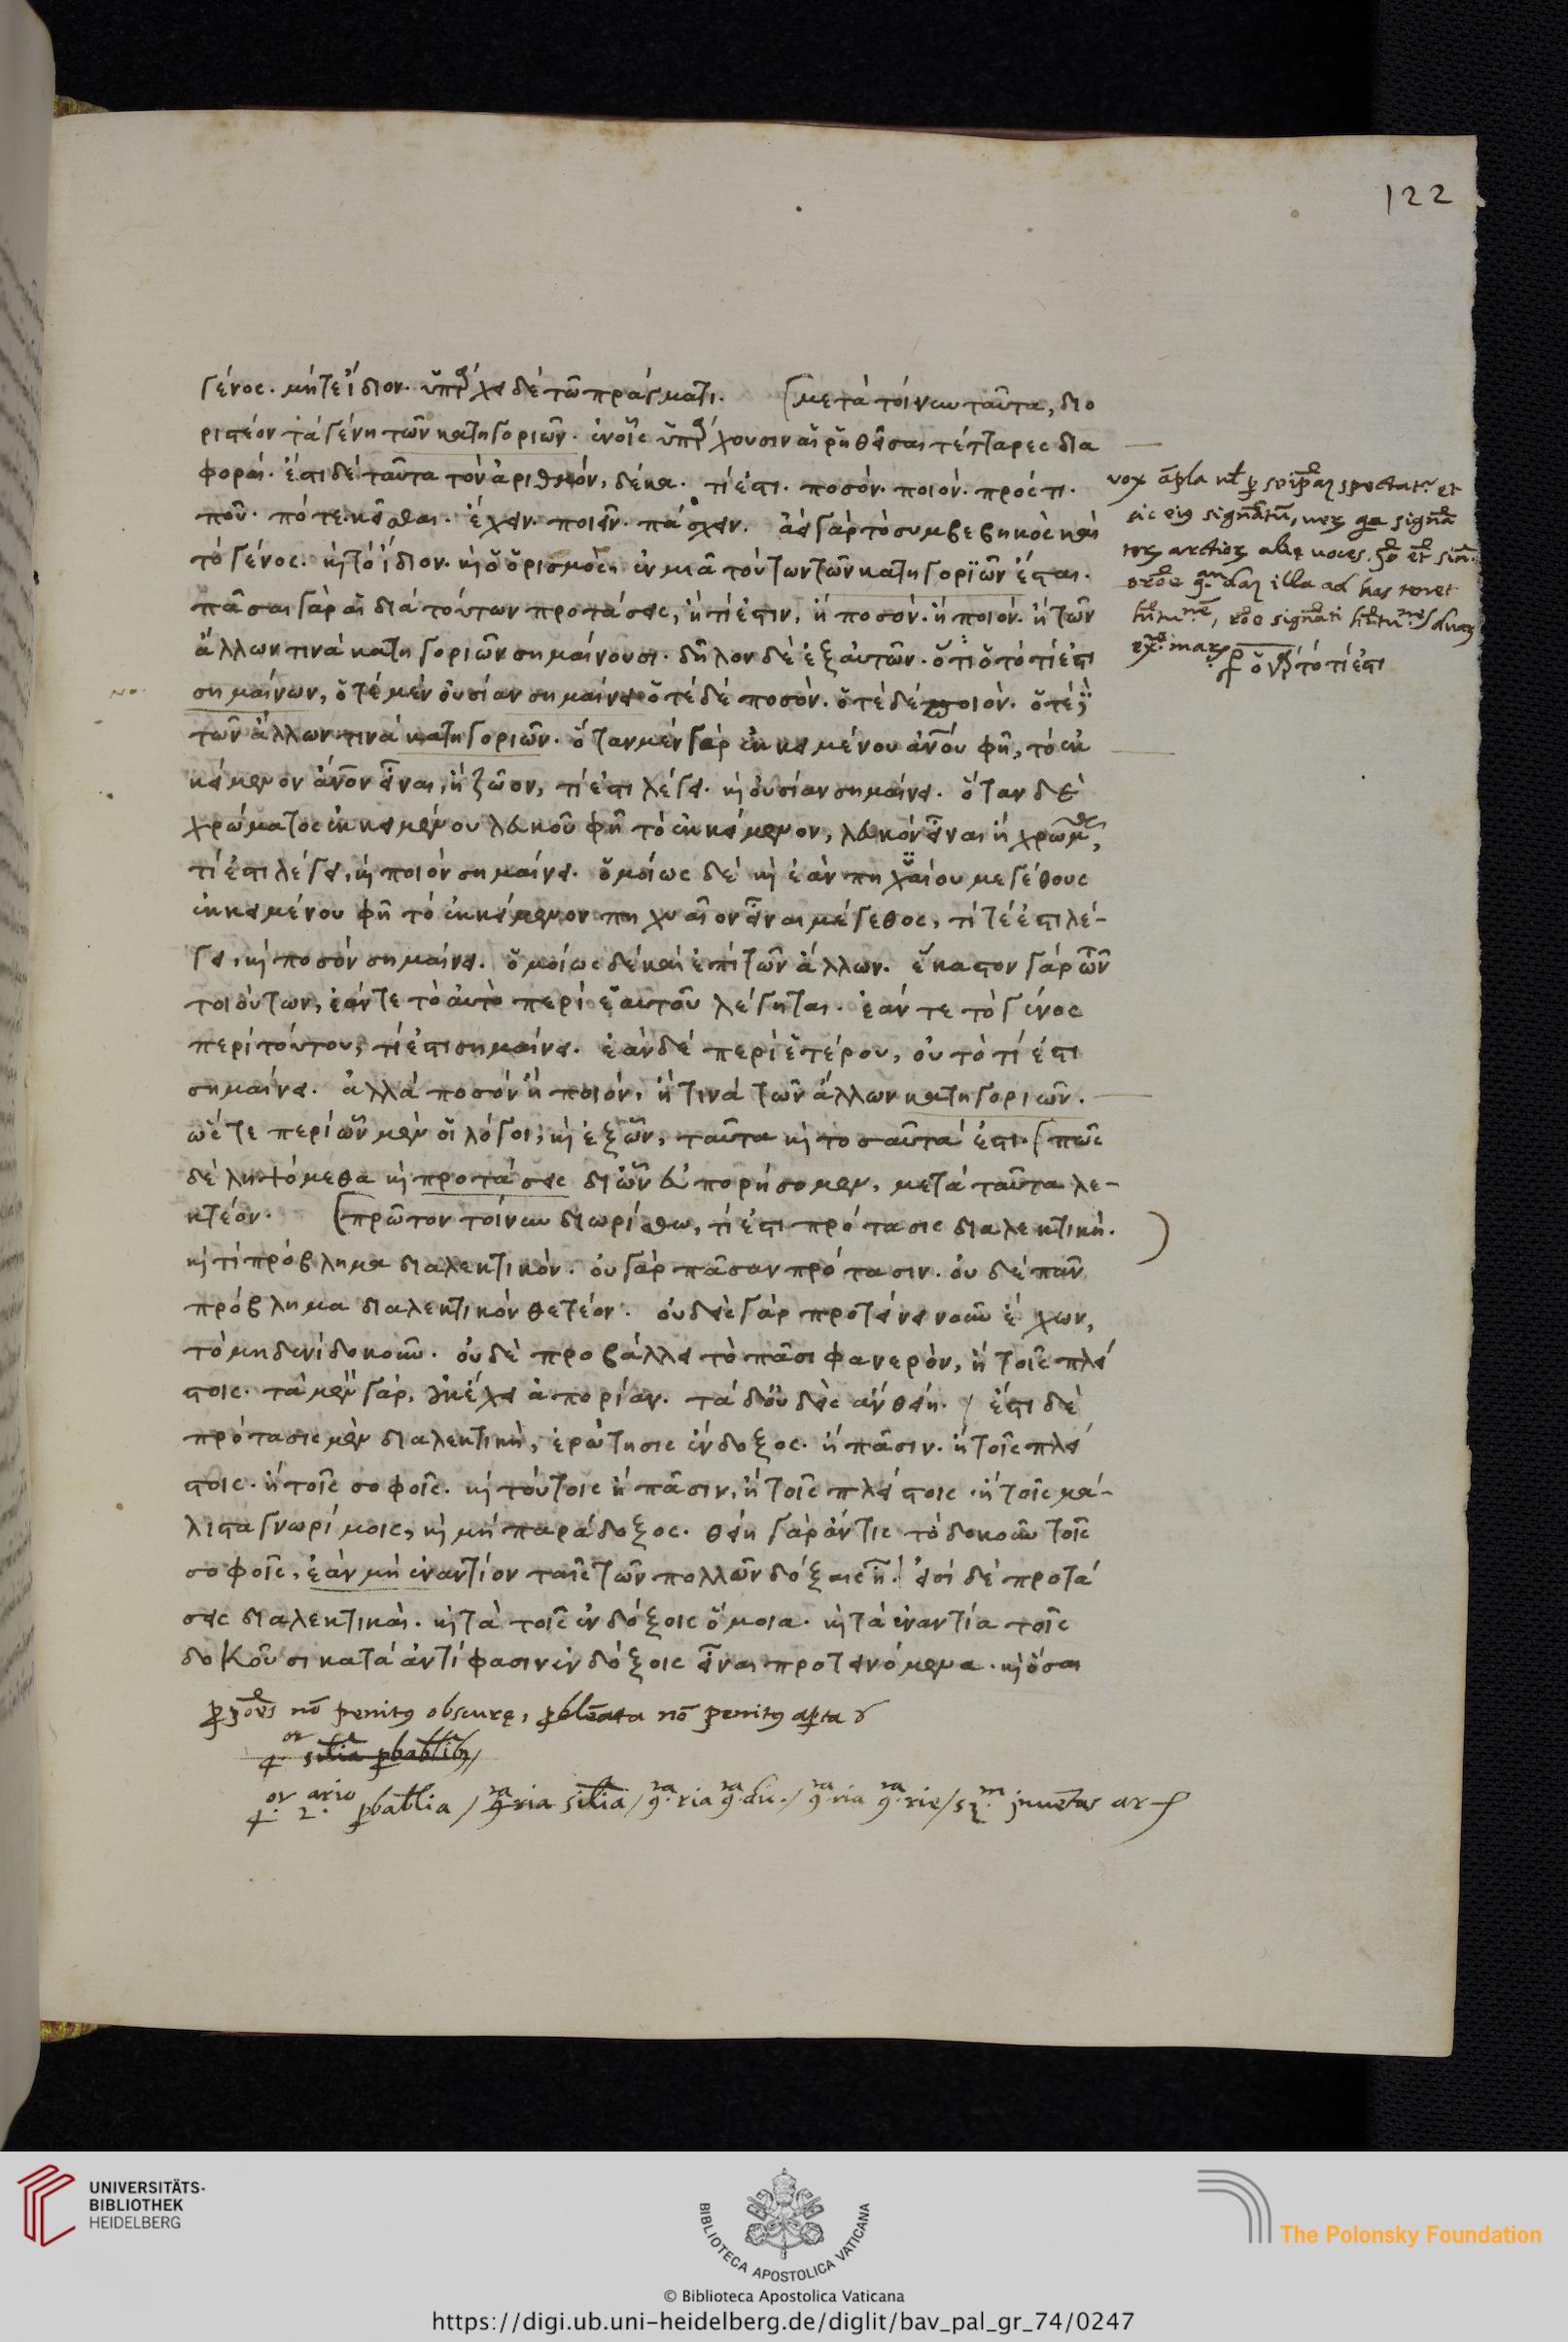 122
γένος. μήτε ἴδιον. ὑπάρχει δὲ τῶ πράγματι. μετὰ τοίνυν ταῦτα, διο
ριστέον τὰ γένη τῶν κατηγοριῶν. ἐν οἷς ὑπάρχουσιν αἱ ῥηθεῖσαι τέτταρες δια
φοραί. ἔστι δὲ ταῦτα τὸν ἀριθμόν, δέκα. τί ἐστι. ποσόν. ποιόν. πρός τι.
ποῦ. πότε. κεῖσθαι. ἔχειν. ποιεῖν. πάσχειν. ἀεὶ γὰρ τὸ συμβεβηκὸς καὶ
τὸ γένος. καὶ τὸ ἴδιον. καὶ ὁ ὁρισμὸς, ἐν μιᾶ τούτων τῶν κατηγοριῶν ἔσται.
πᾶσαι γὰρ αἱ διὰ τούτων προτάσεις, ἢ τί ἐστιν, ἢ ποσόν. ἢ ποιόν. ἢ τῶν
ἄλλων τινὰ κατηγοριῶν σημαίνουσι. δῆλον δὲ ἐξ αὐτῶν. ὅτι ὁ τὸ τί ἐστι
σημαίνων, ὁτὲ μὲν οὐσίαν σημαίνει ὁτὲ δὲ ποσόν. ὁτὲ δὲ ποιόν. ὁτὲ δὲ
τῶν ἄλλων τινὰ κατηγοριῶν. ὅταν μὲν γὰρ ἐκκειμένου ἀνου φῆ, τὸ ἐκ
κείμενον ἄνον εἶναι, ἢ ζῶον, τί ἐστι λέγει. καὶ οὐσίαν σημαίνει. ὅταν δὲ
χρώματος ἐκκειμένου λευκοῦ φῆ τὸ ἐκκείμενον, λευκὸν εἶναι ἢ χρῶμα,
τί ἐστι λέγει, καὶ ποιὸν σημαίνει. ὁμοίως δὲ καὶ ἐὰν πηχυαίου μεγέθους
ἐκκειμένου φῆ τὸ ἐκκείμενον πηχυαῖον εἶναι μέγεθος, τί τέ ἐστι λέ-
γει, καὶ ποσὸν σημαίνει. ὁμοίως δὲ καὶ ἐπὶ τῶν ἄλλων. ἕκαστον γὰρ τῶν
τοιούτων, ἐάν τε τὸ αὐτὸ περὶ ἑαυτοῦ λέγηται. ἐάν τε τὸ γένος
περὶ τούτου, τί ἐστι σημαίνει. ἐὰν δὲ περὶ ἑτέρου, οὐ τὸ τί ἐστι
σημαίνει. ἀλλὰ ποσὸν ἢ ποιόν, ἤ τινα τῶν ἄλλων κατηγοριῶν.
ὥστε περὶ ὧν μὲν οἱ λόγοι, καὶ ἐξ ὧν, ταῦτα καὶ τοσαῦτά ἐστι. πῶς
δὲ ληψόμεθα καὶ προτάσεις δι ὧν εὐπορήσομεν, μετὰ ταῦτα λε-
κτέον. πρῶτον τοίνυν διωρίσθω, τί ἐστι πρότασις διαλεκτική.
καὶ τί πρόβλημα διαλεκτικόν. οὐ γὰρ πᾶσαν πρότασιν. οὐδὲ πᾶν
πρόβλημα διαλεκτικὸν θετέον. οὐδεὶς γὰρ προτείνει νοῦν ἔχων,
τὸ μηδενὶ δοκοῦν. οὐδὲ προβάλλει τὸ πᾶσι φανερὸν, ἢ τοῖς πλεί
στοις. τὰ μὲν γὰρ, οὐκ ἔχει ἀπορίαν. τὰ δ οὐδεὶς ἂν θείη. ἔστι δὲ
πρότασις μὲν διαλεκτικὴ, ἐρώτησις ἔνδοξος. ἢ πᾶσιν. ἢ τοῖς πλεί
στοις. ἢ τοῖς σοφοῖς. καὶ τούτοις ἢ πᾶσιν, ἢ τοῖς πλείστοις. ἢ τοῖς μά-
λιστα γνωρίμοις, καὶ μὴ παράδοξος. θείη γὰρ ἄν τις τὸ δοκοῦν τοῖς
σοφοῖς, ἐὰν μὴ ἐναντίον ταῖς τῶν πολλῶν δόξαις ἦ. εἰσὶ δὲ προτά
σεις διαλεκτικαὶ. καὶ τὰ τοῖς ἐνδόξοις ὅμοια. καὶ τὰ ἐναντία τοῖς
δοκοῦσι κατὰ ἀντίφασιν ἐνδόξοις εἶναι προτεινόμενα. καὶ ὅσαι
et
sic
arctior alię voces.
illa ad has
τὸ τί ἐστι
nō penitꝰ obscurę, nō penitꝰ
UNIVERSITÄTS-
BIBLIOTHEK
HEIDELBERG
BIBLIOTECA APOSTOLICA VATICANA
The Polonsky Foundation
© Biblioteca Apostolica Vaticana
https://digi.ub.uni-heidelberg.de/diglit/bav_pal_gr_74/0247